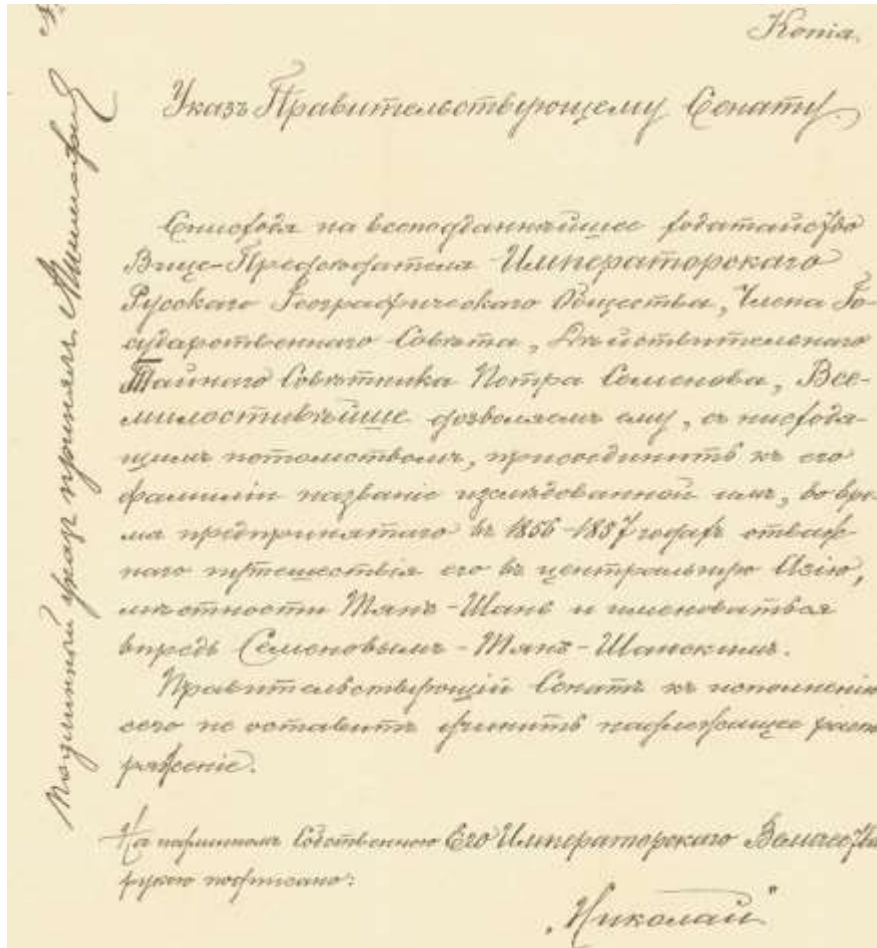 Копія.
Указъ Правительствующему Сенату.
Снисходя на всеподданнѣйшее ходатайство
Вице-Предсѣдателя Императорскаго
Русскаго Географическаго Общества, Члена Го-
сударственнаго Совѣта, Дѣйствительнаго
Тайнаго Совѣтника Петра Семенова, Все-
милостивѣйше дозволяемъ ему, съ нисходя-
щимъ потомствомъ, присоединить къ его
фамиліи названіе изслѣдованной имъ, во вре-
мя предпринятаго въ 1856-1857 годахъ отваж-
наго путешествія его въ центральную Азію,
мѣстности Тянъ-Шань и именоваться
впредь Семеновымъ-Тянъ-Шанскимъ.
Правительствующій Сенатъ къ исполненію
сего не оставитъ учинить надлежащее расп
ряженіе.
На подлинномъ Собственною Его Императорскаго Величества
рукою подписано:
„Николай"
Подлинный указ принялъ